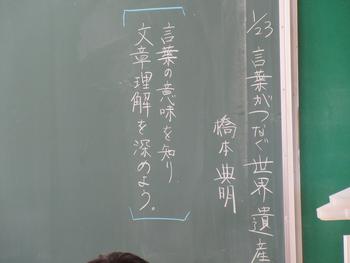 1/23 言葉がつなぐ世界遺産
橋本典明
言葉の意味を知り
文章理解を深めよう。